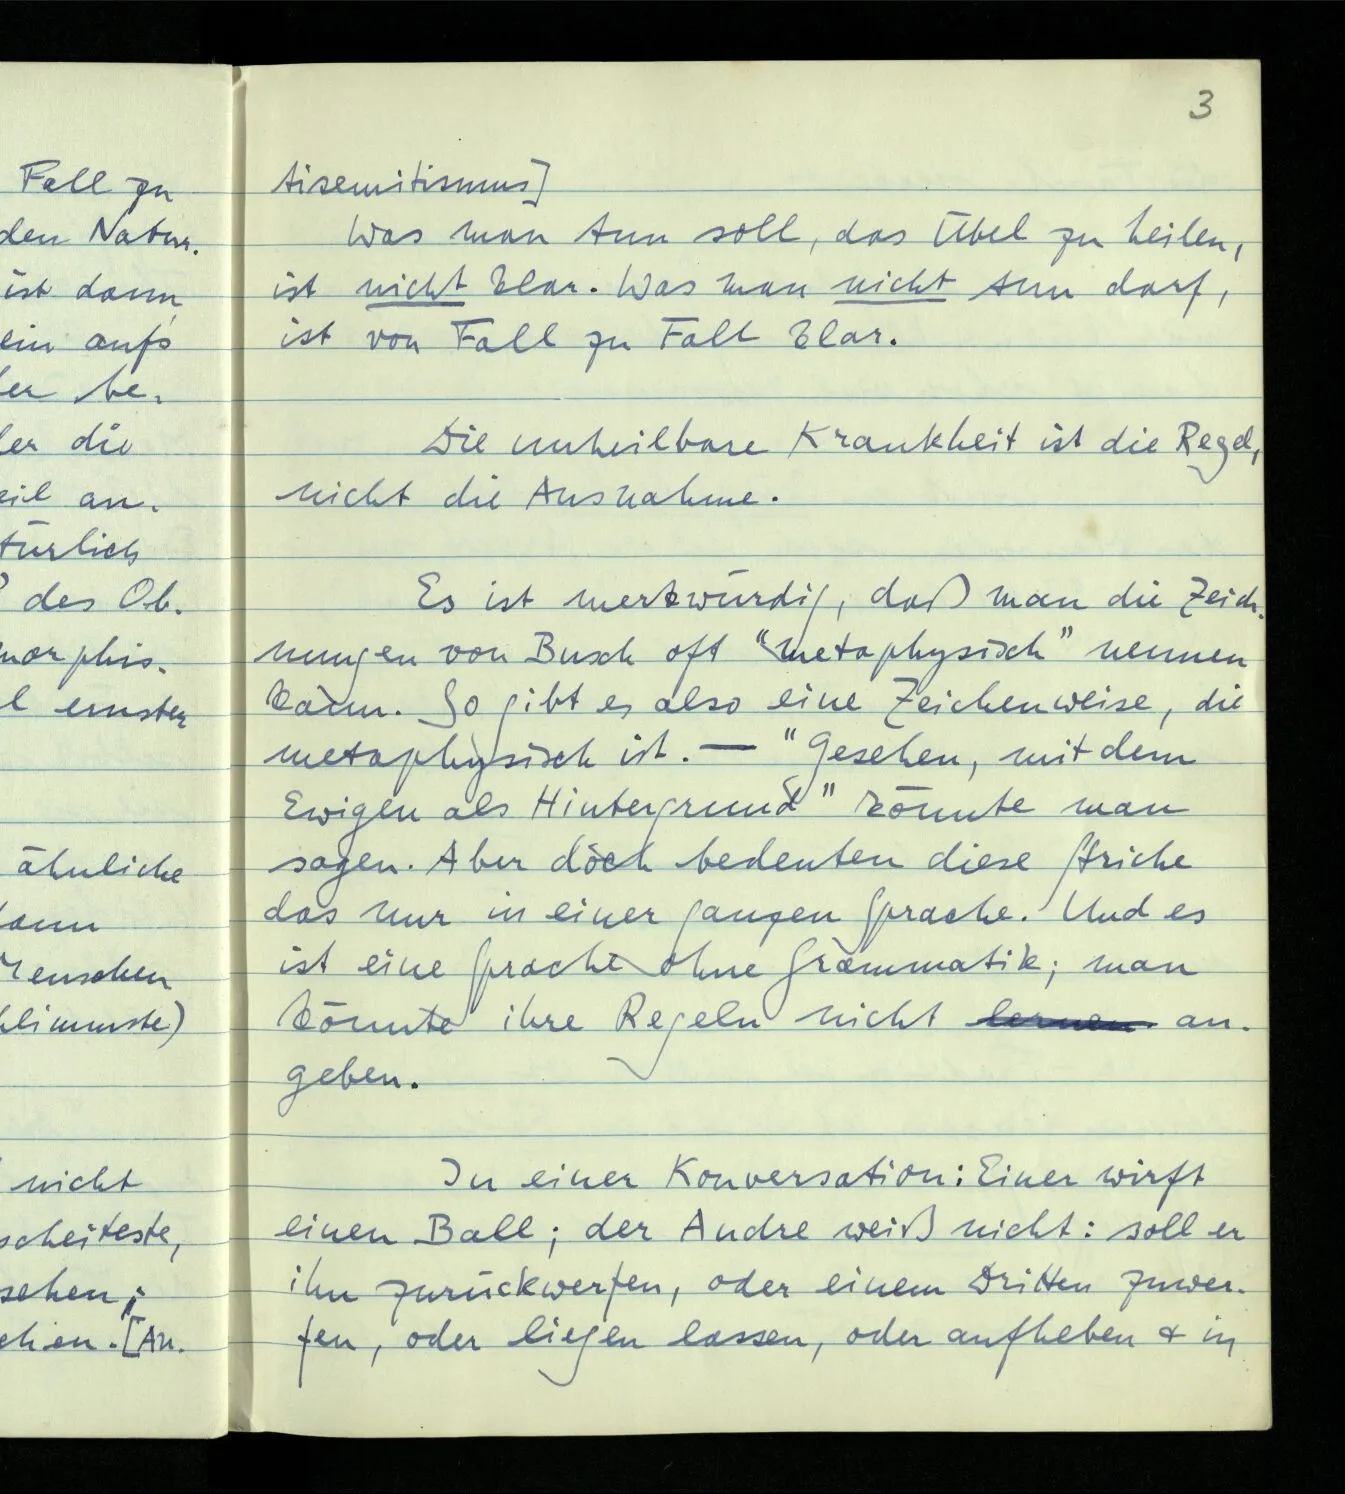 Fall zu
den Natur-
ist dann
ein aufs
be-
die
an-
türlich
des Ob-
morphis-
ernster
ähnliche
kann
Menschen
schlimmste)
nicht
scheiteste,
sehen;
[An-
3
tisemitismus]
Was man tun soll, das Übel zu heilen,
ist nicht klar. Was man nicht tun darf,
ist von Fall zu Fall klar.
Die unheilbare Krankheit ist die Regel,
nicht die Ausnahme.
Es ist merkwürdig, daß man die Zeich-
nungen von Busch oft "metaphysisch" nennen
kann. So gibt es also eine Zeichenweise, die
metaphysisch ist. — "Gesehen, mit dem
Ewigen als Hintergrund" könnte man
sagen. Aber doch bedeuten diese Striche
das nur in einer ganzen Sprache. Und es
ist eine Sprache ohne Grammatik; man
könnte ihre Regeln nicht lernen an-
geben.
In einer Konversation: Einer wirft
einen Ball; der Andre weiß nicht: soll er
ihn zurückwerfen, oder einem Dritten zuwer-
fen, oder liegen lassen, oder aufheben & in